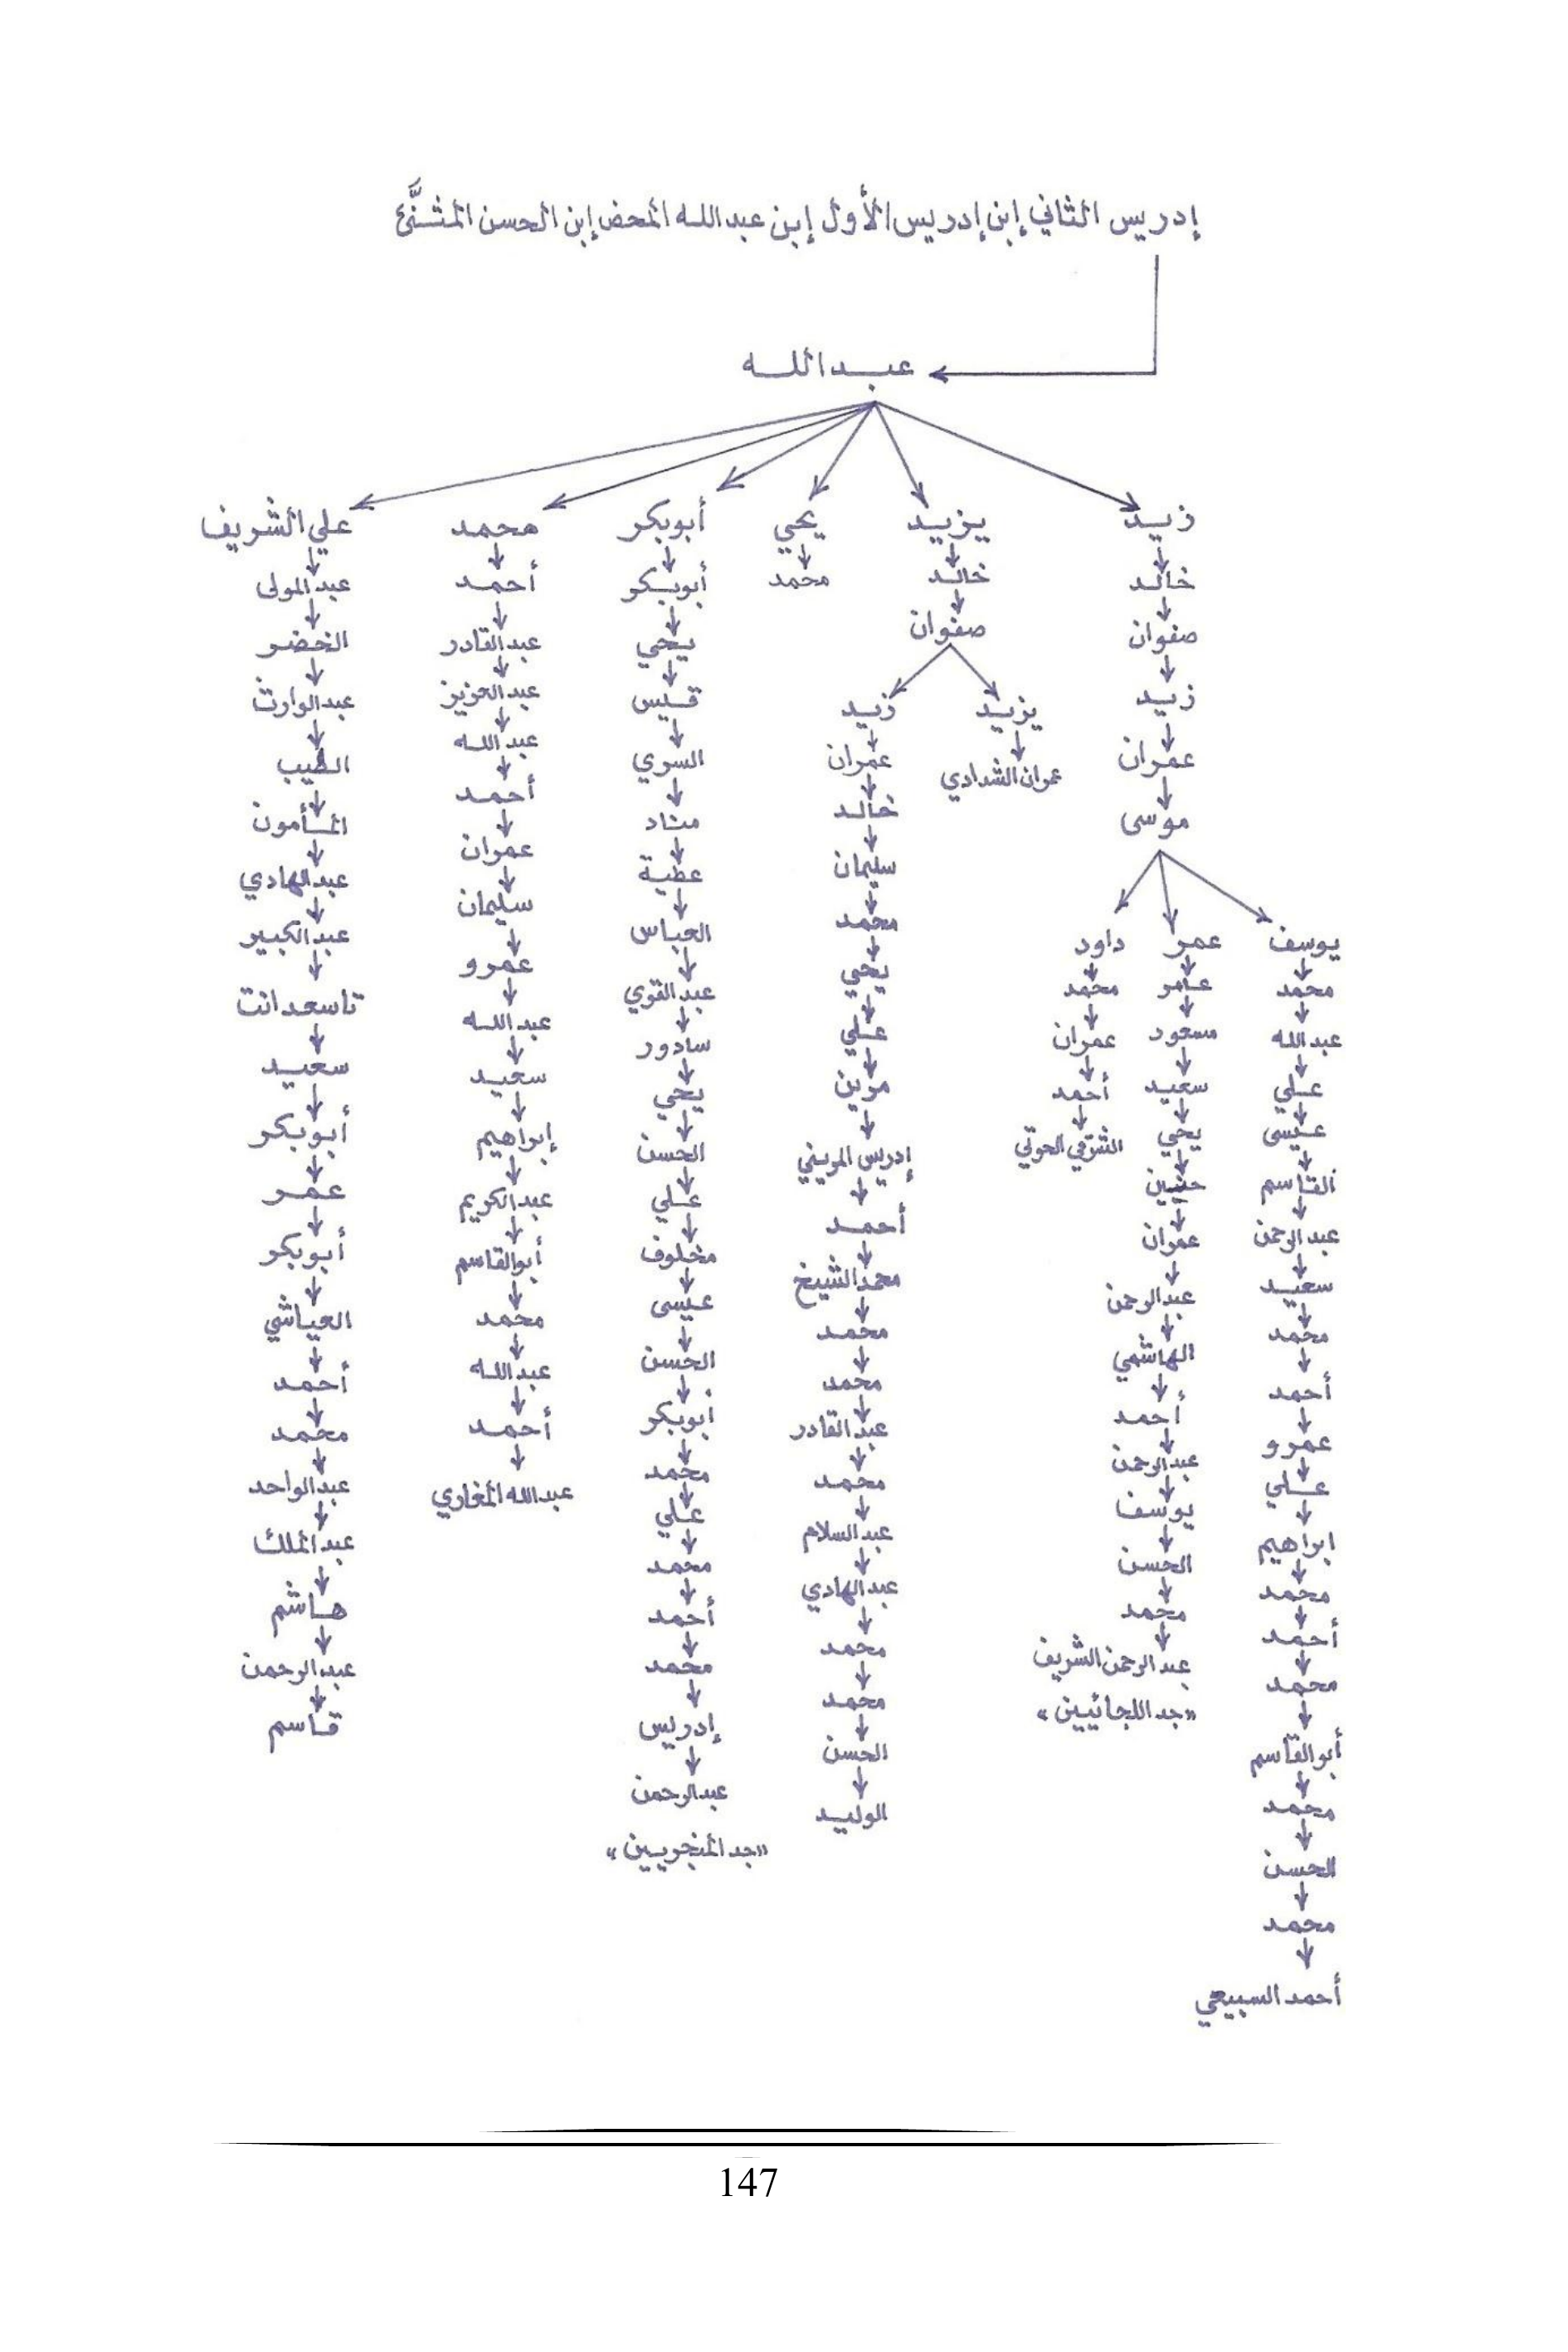 إدريس الثاني إبن إدريس الأول إبن عبد الله المحض إبن الحسن المثنَّى
عبد الله
زيد
خالد
صفوان
زيد
عمران
موسى
يوسف
محمد
عبد الله
علي
عيسى
القاسم
عبد الرحمن
سعيد
محمد
أحمد
عمرو
علي
ابراهيم
محمد
أحمد
محمد
أبو القاسم
محمد
الحسن
محمد
أحمد السبيعي
عمر
عامر
مسعود
سعيد
يحي
حنين
عمران
عبد الرحمن
الهاشمي
أحمد
عبد الرحمن
يوسف
الحسن
محمد
عبد الرحمن الشريف
«جد اللجائيين»
داود
محمد
عمران
أحمد
يزيد
خالد
صفوان
يزيد
عمران الشدادي
زيد
عمران
خالد
سليمان
محمد
يحي
علي
مرين
إدريس المريني
أحمد
محمد الشيخ
محمد
محمد
عبد القادر
محمد
عبد السلام
عبد الهادي
محمد
محمد
الحسن
الوليد
يحي
محمد
أبوبكر
أبوبكر
يحي
قيس
السري
مناد
عطية
العباس
عبد القوي
سادور
يحي
الحسن
علي
مخلوف
عيسى
الحسن
أبوبكر
محمد
علي
محمد
أحمد
محمد
إدريس
عبد الرحمن
«جد المنجريين»
محمد
أحمد
عبد القادر
عبد العزيز
عبد الله
أحمد
عمران
سليمان
عمرو
عبد الله
سعيد
إبراهيم
عبد الكريم
أبو القاسم
محمد
عبد الله
أحمد
عبد الله المغاري
علي الشريف
عبد المولى
الخضر
عبد الوارث
الطيب
المأمون
عبد الهادي
عبد الكبير
تاسعدانت
سعيد
أبوبكر
عمر
أبوبكر
العياشي
أحمد
محمد
عبد الواحد
عبد الملك
هاشم
عبد الرحمن
قاسم
147